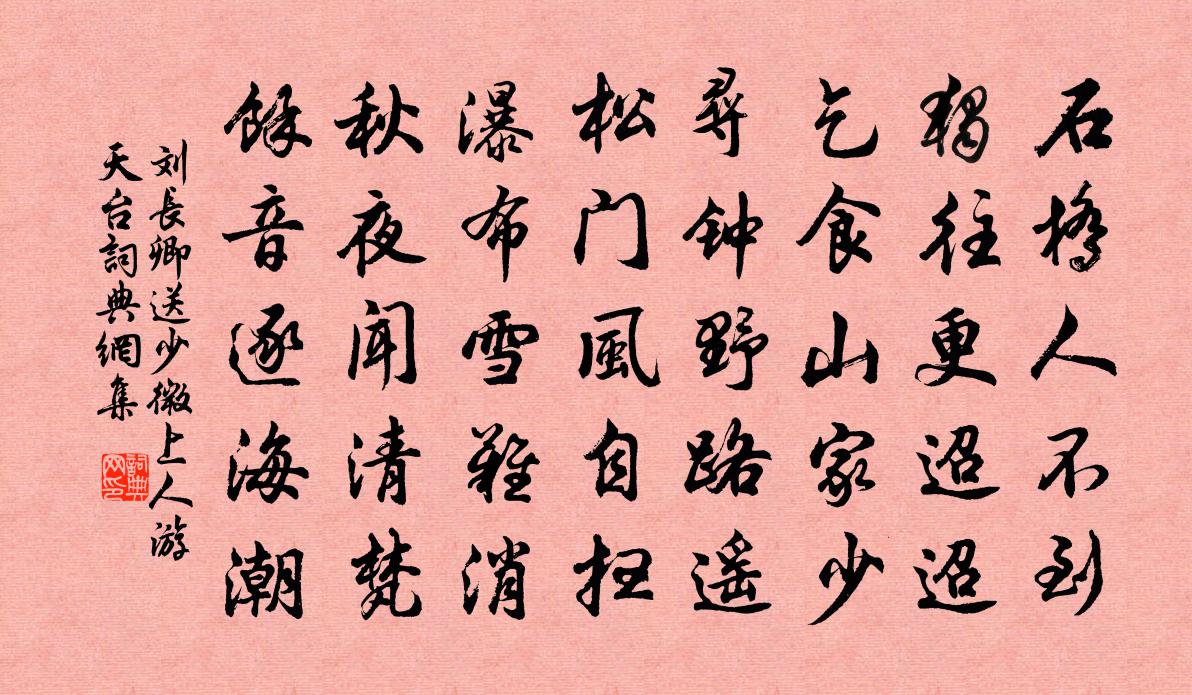 石橋人不到
獨往更迢迢
乞食山家少
尋钟野路遥
松门風自扫
瀑布雪難消
秋夜闻清梵
餘音逐海潮
刘長卿送少微上人游
天台詞典網集
詞典
网印